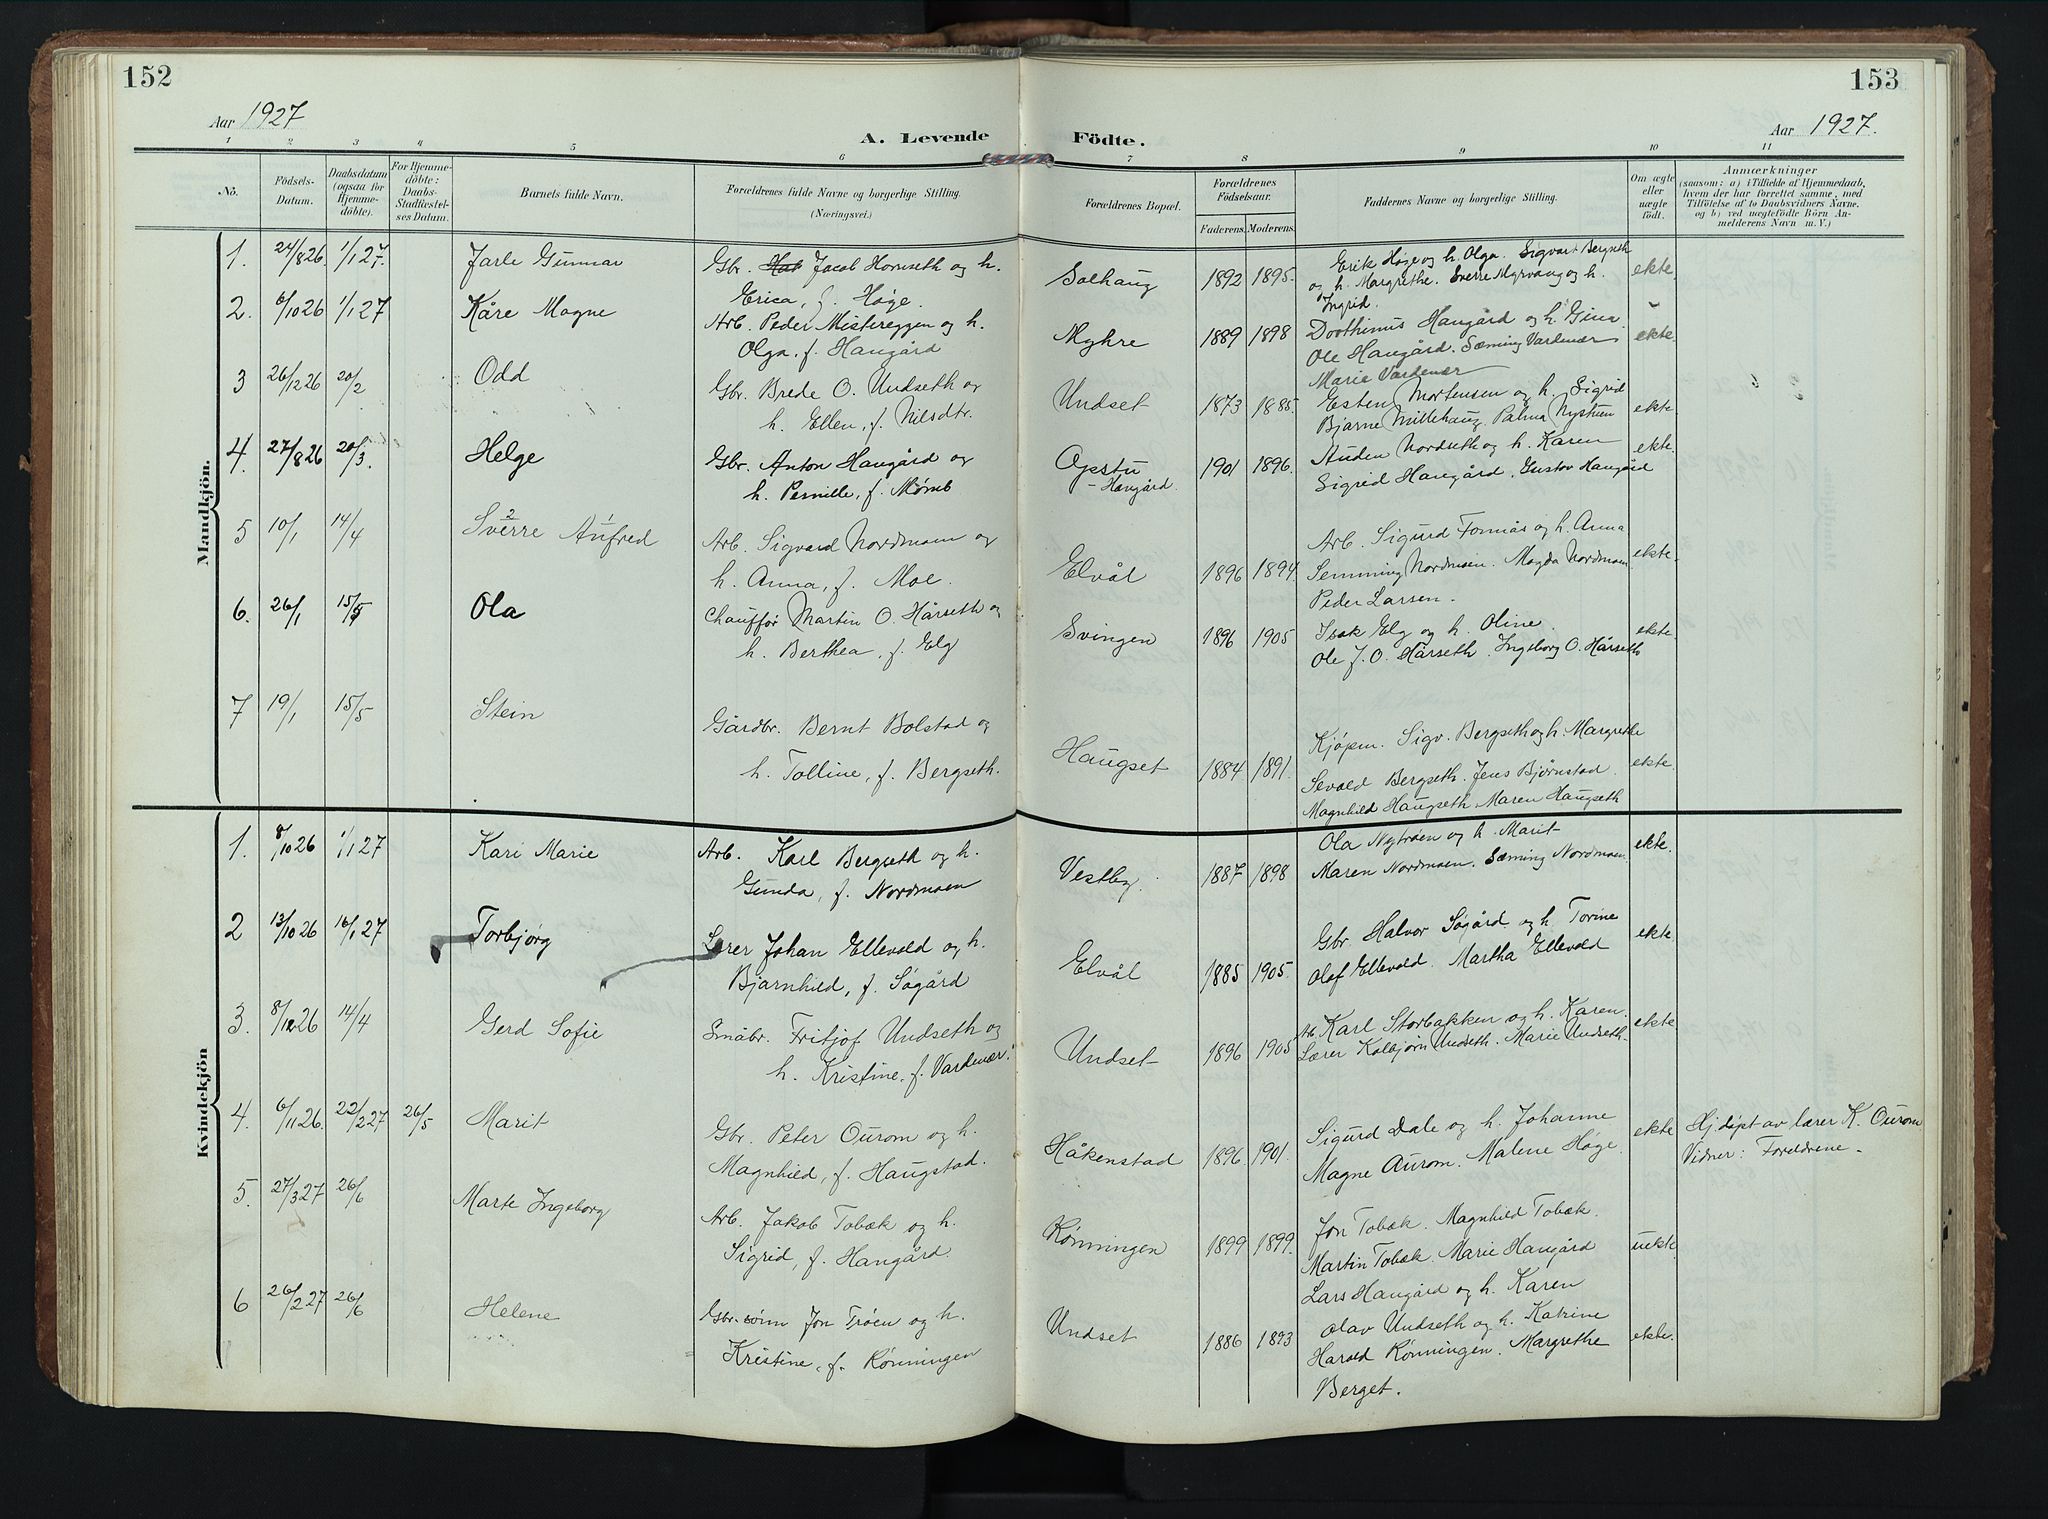 152
Aar 1927
A. Levende
1 2 3 4 5 6
Nô.
Födsels-Datum.
Daabsdatum (ogsaa for Hjemme-döbte).
For Hjemme-döbte: Daabs-Stadfæstel-ses Datum.
Barnets fulde Navn.
Forældrenes fulde Navne og borgerlige Stilling. (Næringsvei.)
Mandkjön.
1. 24/8 26. 1/1 27. Jarle Gunnar Gbr. Jacob Hornseth og h.
Erica, f. Høge.
2. 6/10 26 1/1 27 Kåre Magne Arb. Peder Mistereggen og h.
Olga, f. Hangård
3 26/2 26 20/2 Odd Gbr. Brede O. Undseth og
h. Ellen, f. Nilsdtr.
4. 27/8 26 20/3. Helge Gbr. Anton Hangård og
h. Pernille, f. Mømb
5 10/1 14/4 Sverre Aufred Arb. Sigvard Nordmoen og
h. Anna, f. Moe.
6. 26/1 15/5 Ola Chauffør Martin O. Hårseth og
h. Berthea, f. Elg
7 19/1 15/5 Stein Gårdbr. Bernt Bolstad og
h. Tolline, f. Bergseth.
Kvindekjön
1. 8/10 26 1/1 27 Kari Marie Arb. Karl Bergseth og h.
Gunda, f. Nordmoen
2 13/10 26 16/1 27 Torbjørg Lærer Johan Ellevold og h.
Bjarnhild, f. Søgård
3. 8/12 26 14/4 Gerd Sofie Småbr. Fritjof Undseth og
h. Kristine, f. Vardenær.
4. 6/11 26. 22/2 27 26/5 Marit Gbr. Peter Ourom og h.
Magnhild, f. Haugstad.
5. 27/3 27 26/6 Marte Ingeborg Arb. Jakob Tobæk og h.
Sigrid, f. Hangård.
6 26/2 27 26/6 Helene Gbr.sønn Jon Trøen og h.
Kristine, f. Rønningen
153
Födte.
Aar 1927.
7 8 9 10 11
Forældrenes Bopæl.
Forældrenes Födselsaar.
Faderens. Moderens.
Faddernes Navne og borgerlige Stilling.
Om ægte eller uægte födt.
Anmærkninger
(saasom: a) i Tilfælde af Hjemmedaab,
hvem der har forrettet samme, med
Tilföielse af to Daabsvidners Navne,
og b) ved uægtefödte Börn An-
melderens Navn m. V.)
Erik Høge og h. Olga. Sigvart Bergseth
Solhaug 1892 1895. og h. Margrethe. Sverre Myrvang og h. ekte.
Ingrid.
Dorthinus Hangård og h. Gina
Myhre 1889 1898 Ole Hangård. Sæming Vardenær ekte.
Marie Vardenær
Esten Mortensen og h. Sigrid
Undset 1873 1885. Bjarne Millehaug. Palma Nystuen ekte
Auden Nordseth og h. Karen ekte.
Opstu 1901 1896.
-Hangård. Sigrid Hangård. Gustav Hangård
Arb. Sigurd Fornås og h. Anna
Elvål 1896 1894. Semming Nordmoen. Magda Nordmoen ekte.
Peder Larsen.
Svingen 1896 1905 Isak Elg og h. Oline. ekte.
Ole J. O. Hårseth. Ingeborg O. Hårseth
Kjøpm. Sigv. Bergseth og h. Margrethe
Haugset 1884 1891. Sevald Bergseth. Jens Bjørnstad. ekte.
Magnhild Haugseth. Maren Haugseth
Ola Nytrøen og h. Marit ekte.
Vestby. 1887 1898 Maren Nordmoen. Sæming Nordmoen.
Gbr. Halvor Søgård og h. Torine ekte.
Elvål 1885 1905. Olaf Ellevold. Martha Ellevold
Arb. Karl Storbækken og h. Karen. ekte.
Undset 1896 1905 Lærer Kolbjørn Undseth. Marie Undseth.
Sigurd Dale og h. Johanne ekte Hj.døpt av lærer K. Ourom
Håkenstad 1896. 1901. Magne Aurom. Malene Høge. Vidner: Foreldrene.
Jon Tobæk. Magnhild Tobæk.
Rønningen 1899 1899. Martin Tobæk. Marie Hangård uekte.
Lars Hangård og h. Karen
Undset 1886 1893 Olav Undseth og h. Katrine
Harald Rønningen. Margrethe ekte.
Berget.